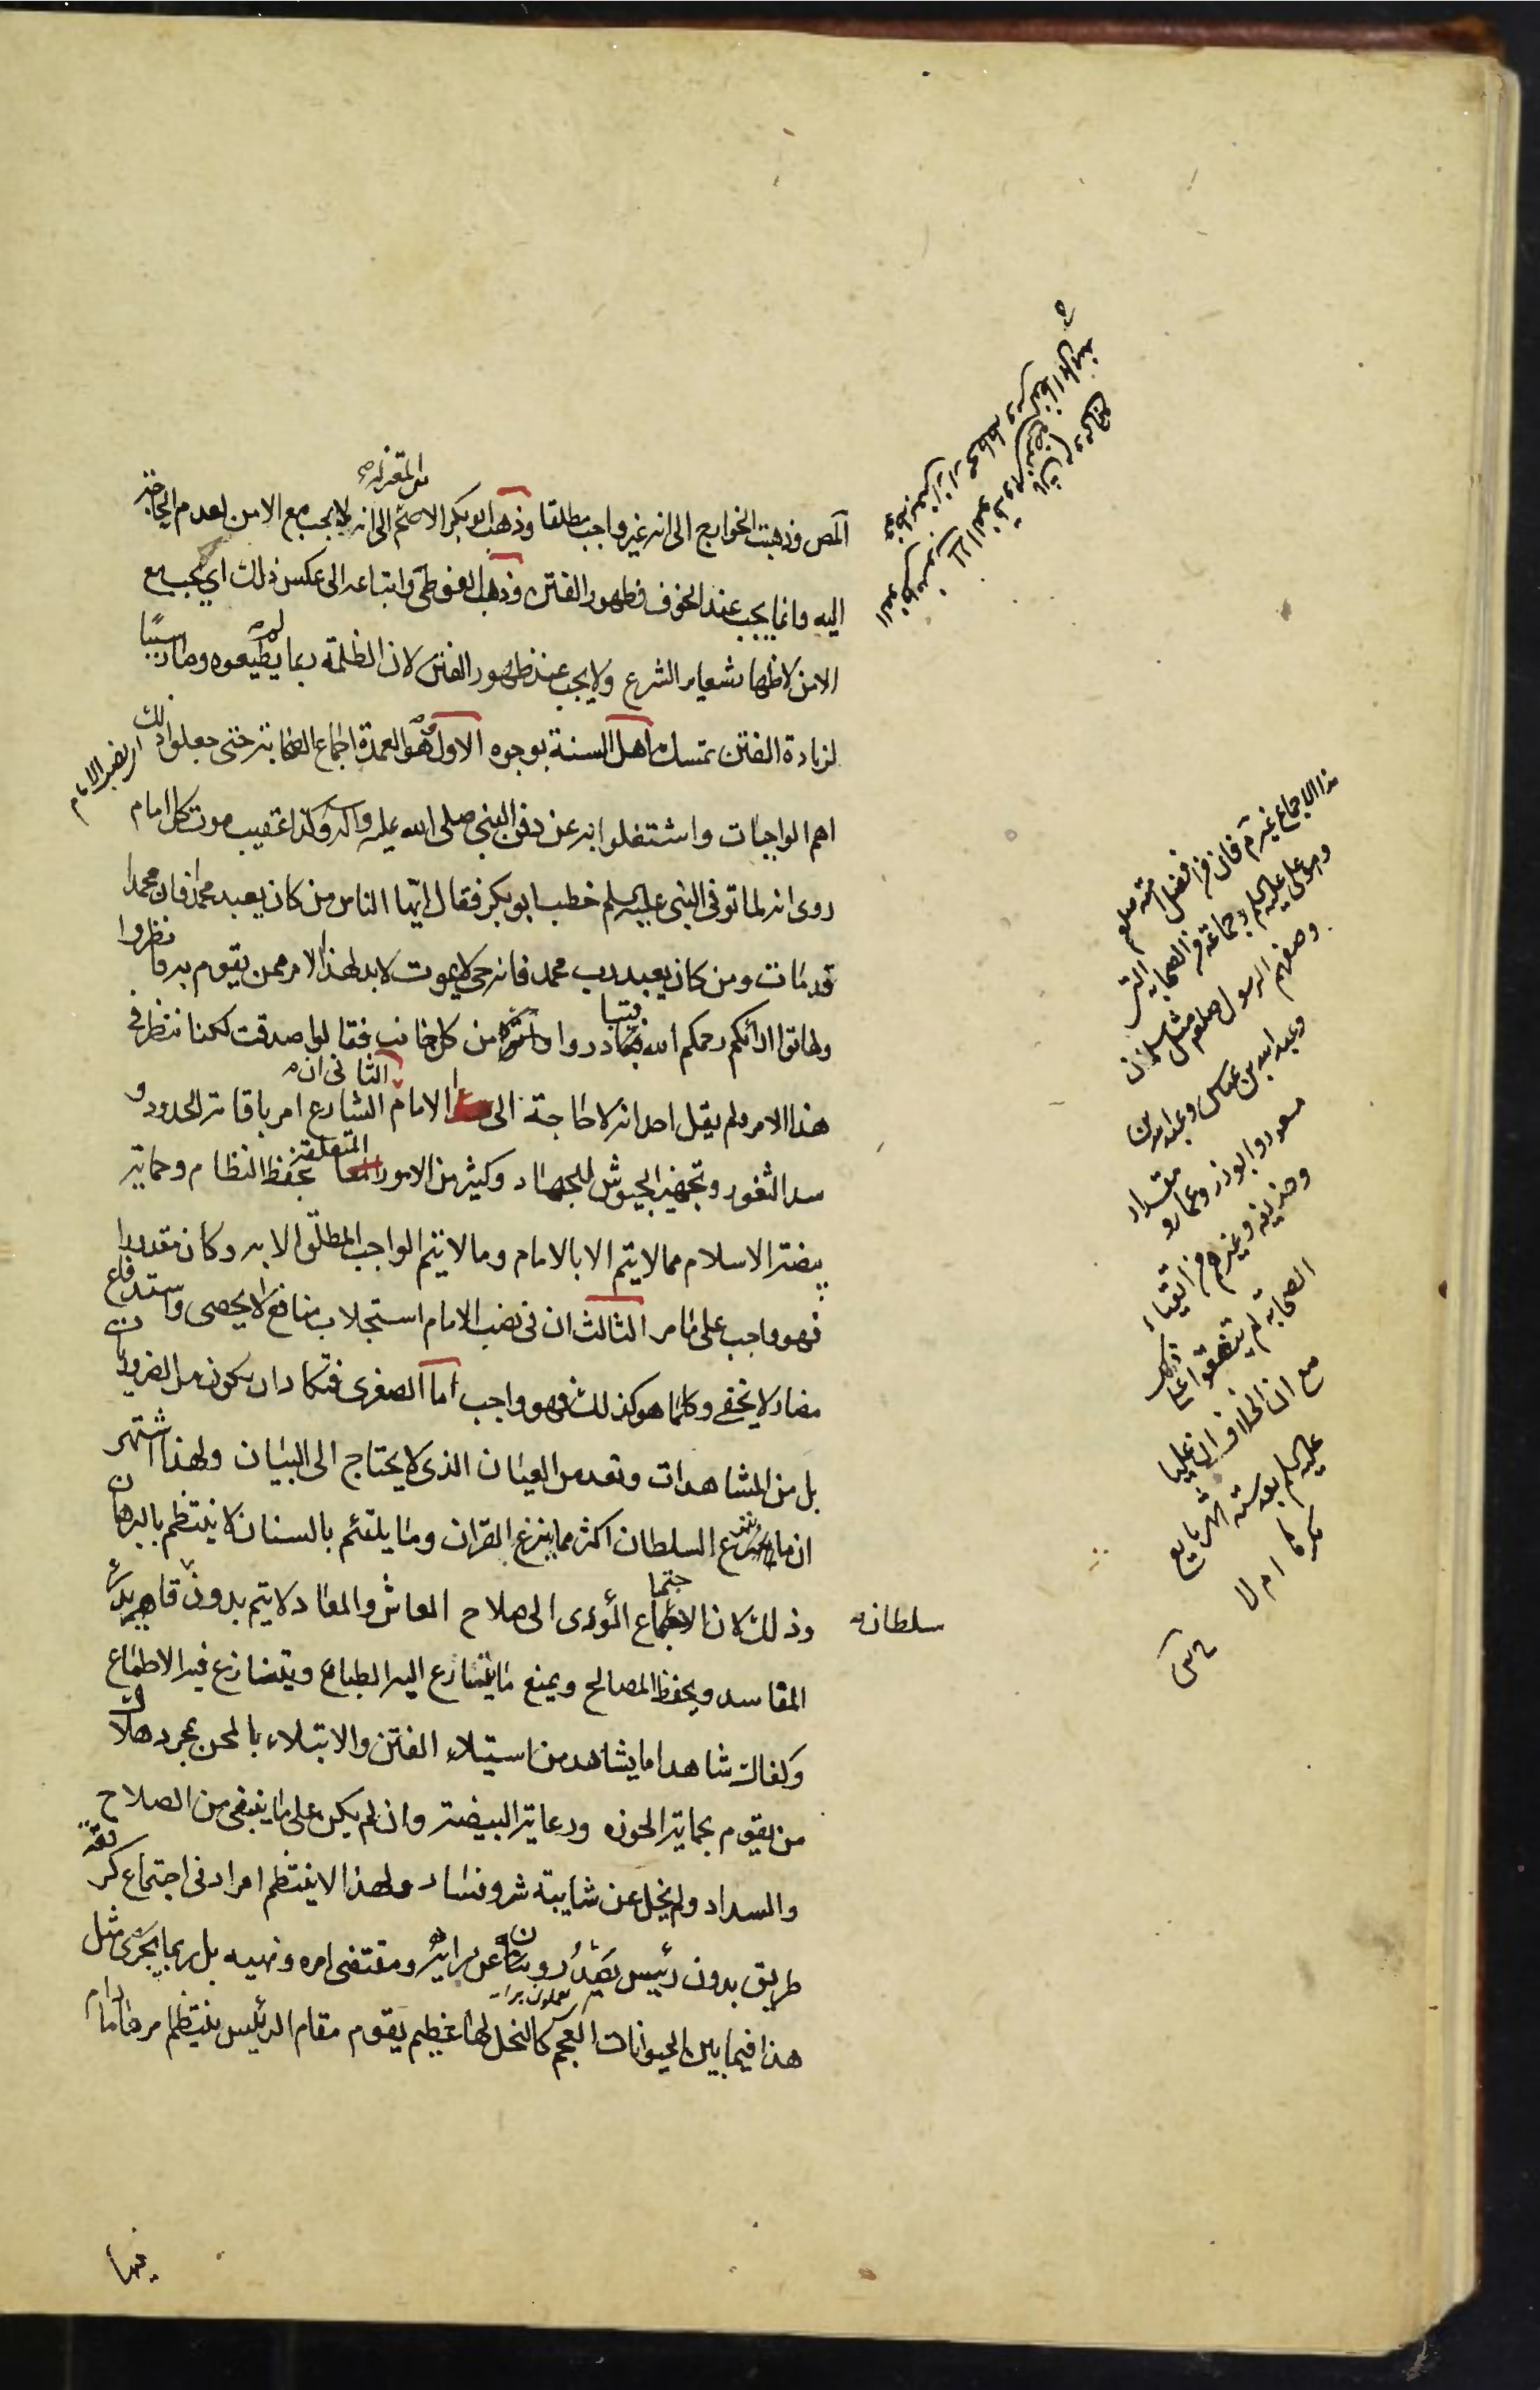 المص وذهبت الخوارج الى انه غير واجب مطلقا وذهب ابوبكر الاصم الى انه لا يجب مع الامن لعدم الحاجة
من المعتزلة
اليه وانما يجب عند الخوف وظهور الفتن وذهب الفوطى واتباعه الى عكس ذلك اى يجب مع
الامن لاظهار شعاير الشرع ولا يجب عند ظهور الفتن لان الظلمة ربما لم يطيعوه وصار سببا
لزيادة الفتن تمسك اهل السنة بوجوه الاول وهو العمدة اجماع الصحابة حتى جعلوا ذلك
اى نصب الامام
اهم الواجبات واشتغلوا به عن دفن النبى صلى الله عليه وآله وكذا عقيب موت كل امام
روى انه لما توفى النبى عليه السلم خطب ابو بكر فقال ايها الناس من كان يعبد محمدا فان محمدا
قد مات ومن كان يعبد رب محمد فانه حى لا يموت لابد لهذا الامر ممن يقوم به فانظروا
وهاتوا آرائكم رحمكم الله فتبادروا من كل جانب فقالوا صدقت لكنا ننظر فى
هذا الامر ولم يقل احد انه لا حاجة الى الامام الثانى ان الشارع امر باقامة الحدود و
سد الثغور وتجهيز الجيوش للجهاد وكثير من الامور المتعلقة بحفظ النظام وحماية
بيضة الاسلام مما لا يتم الا بالامام وما لا يتم الواجب المطلق الا به وكان مقدورا
فهو واجب على ما مر الثالث ان فى نصب الامام استجلاب منافع لا يحصى واستدفاع
مضار لا يخفى وكلما هو كذلك فهو واجب اما الصغرى فتكاد ان يكون من الضروريات
بل من المشاهدات وتعد من العيان الذى لا يحتاج الى البيان ولهذا اشتهر
ان ما يزع السلطان اكثر مما يزع القران وما يلتئم بالسنان لا ينتظم بالبرهان
وذلك لان الاجتماع المؤدى الى صلاح المعاش والمعاد لا يتم بدون سلطان قاهر يدرء
المفاسد ويحفظ المصالح ويمنع ما يتسارع اليه الطباع ويتنازع فيه الاطماع
وكفاك شاهدا ما يشاهد من استيلاء الفتن والابتلاء بالمحن بمجرد هلاك
من يقوم بحماية الحوزه ورعاية البيضة وان لم يكن على ما ينبغى من الصلاح
والسداد ولم يخل عن شايبة شر وفساد ولهذا لا ينتظم امر ادنى اجتماع كرفقة
طريق بدون رئيس يصدرون عن رايه ومقتضى امره ونهيه بل ربما يجرى مثل
هذا فيما بين الحيوانات العجم كالنحل لها عظيم يقوم مقام الرئيس ينتظم امرها ما دام
فيها
هذا الاجماع غير م فان من افضل امته صلعم
وهو على عليه السلم وجماعة من الصحابة التى
وصفهم الرسول صلعم مثل سلمان
وعبد الله بن عباس وعبد الله بن
مسعود وابو ذر وعمار و مقداد
وحذيفه وغيرهم من اتقياء
الصحابة لم يتفقوا على ذلك
مع ان الخلاف ان عليا
عليه السلم بعد ستة اشهر بايع
مكرها ام لا